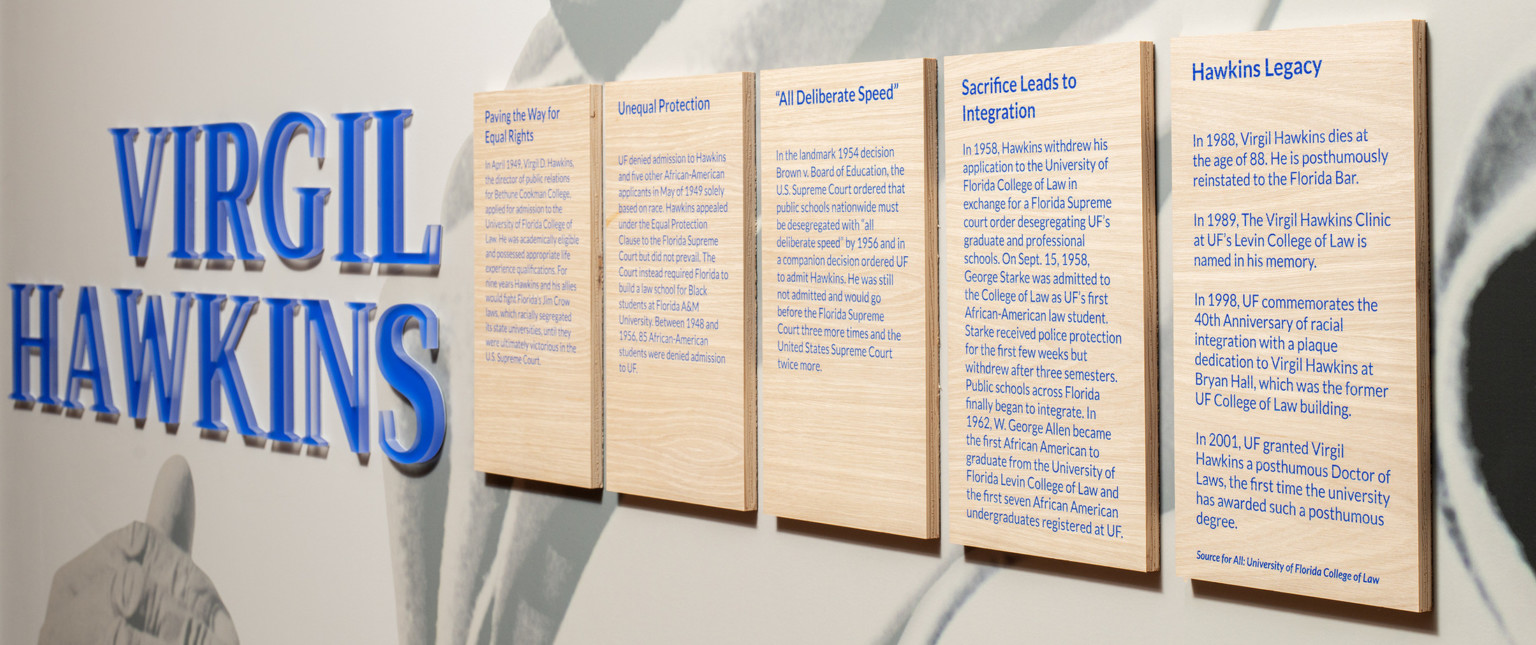 VIRGIL
HAWKINS
Paving the Way for
Equal Rights
In April 1949, Virgil D. Hawkins,
the director of public relations
for Bethune Cookman College,
applied for admission to the
University of Florida College of
Law. He was academically eligible
and possessed appropriate life
experience qualifications. For
nine years Hawkins and his allies
would fight Florida's Jim Crow
laws, which racially segregated
its state universities, until they
were ultimately victorious in the
U.S. Supreme Court.
Unequal Protection
UF denied admission to Hawkins
and five other African-American
applicants in May of 1949 solely
based on race. Hawkins appealed
under the Equal Protection
Clause to the Florida Supreme
Court but did not prevail. The
Court instead required Florida to
build a law school for Black
students at Florida A&M
University. Between 1948 and
1956, 85 African-American
students were denied admission
to UF.
“All Deliberate Speed”
In the landmark 1954 decision
Brown v. Board of Education, the
U.S. Supreme Court ordered that
public schools nationwide must
be desegregated with “all
deliberate speed” by 1956 and in
a companion decision ordered UF
to admit Hawkins. He was still
not admitted and would go
before the Florida Supreme
Court three more times and the
United States Supreme Court
twice more.
Sacrifice Leads to
Integration
In 1958, Hawkins withdrew his
application to the University of
Florida College of Law in
exchange for a Florida Supreme
court order desegregating UF's
graduate and professional
schools. On Sept. 15, 1958,
George Starke was admitted to
the College of Law as UF's first
African-American law student.
Starke received police protection
for the first few weeks but
withdrew after three semesters.
Public schools across Florida
finally began to integrate. In
1962, W. George Allen became
the first African American to
graduate from the University of
Florida Levin College of Law and
the first seven African American
undergraduates registered at UF.
Hawkins Legacy
In 1988, Virgil Hawkins dies at
the age of 88. He is posthumously
reinstated to the Florida Bar.
In 1989, The Virgil Hawkins Clinic
at UF's Levin College of Law is
named in his memory.
In 1998, UF commemorates the
40th Anniversary of racial
integration with a plaque
dedication to Virgil Hawkins at
Bryan Hall, which was the former
UF College of Law building.
In 2001, UF granted Virgil
Hawkins a posthumous Doctor of
Laws, the first time the university
has awarded such a posthumous
degree.
Source for All: University of Florida College of Law